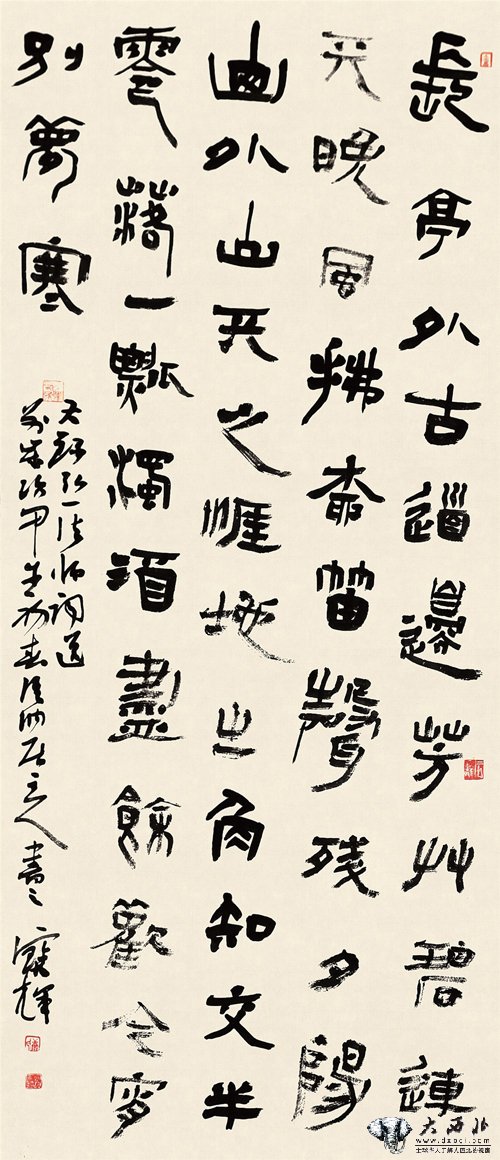 長亭外古道邊芳艸碧連
天晚風拂柳笛聲殘夕陽
山外山天之涯地之角知交半
零落一瓢濁酒盡餘歡今宵
別夢寒
右録弘一法师詞送
別歲次甲午初春居主人書之
大西北